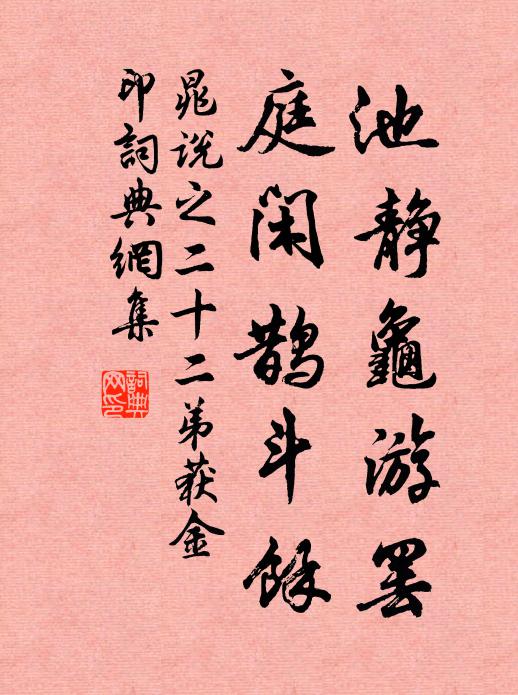 池静龜游罢
庭闲鹊斗餘
晁说之二十二弟获金
印詞典網集
詞典
网印